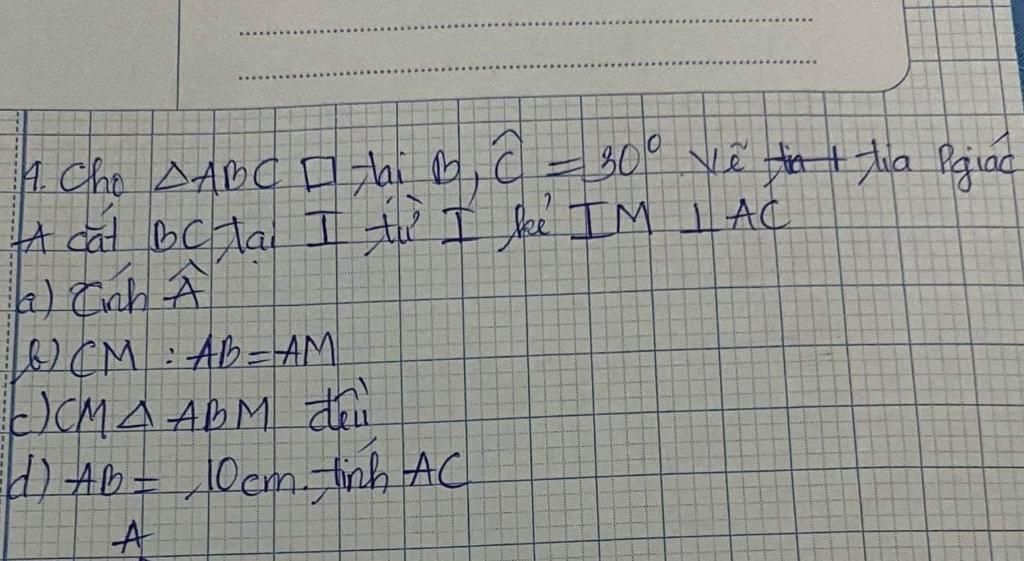 1. Cho △ABC □ tại B, Ĉ = 30° Vẽ tia Pgiác
A cắt BC tại I từ I kẻ IM ⊥ AC
a) Tính Â
b) CM : AB = AM
c) CM △ ABM đều
d) AB = 10cm. tính AC
A